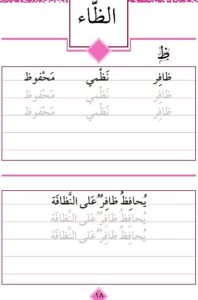 الظّاء
ظ
ظافِر نَظْمي مَحْفوظ
ظافِر نَظْمي مَحْفوظ
ظافِر نَظْمي مَحْفوظ
يُحافِظُ ظافِرٌ عَلى النَّظافَة
يُحافِظُ ظافِرٌ عَلى النَّظافَة
يُحافِظُ ظافِرٌ عَلى النَّظافَة
١٨